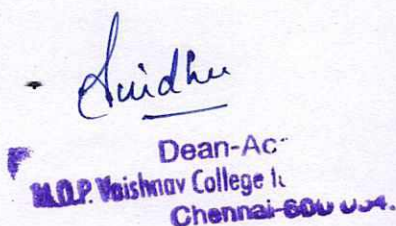 Sindhu
Dean-Ac
M.O.P. Vaishnav College
Chennai-600